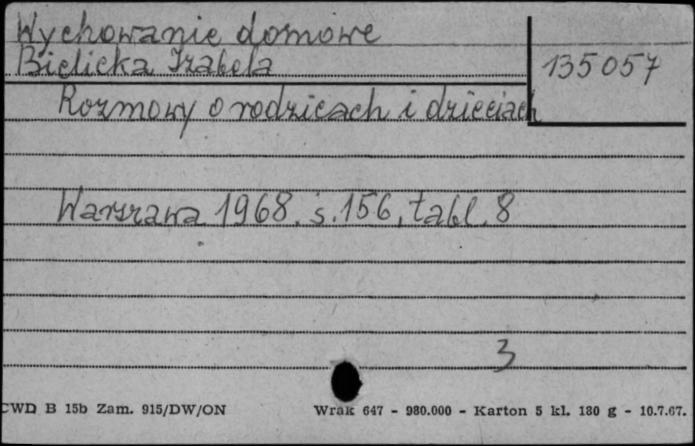 Wychowanie domowe
Bielicka Izabela
135057
Rozmowy o rodzicach i dzieciach
Warszawa 1968. s. 156, tabl. 8
3
CWD B 15b Zam. 915/DW/ON
Wrak 647 - 980.000 - Karton 5 kl. 180 g - 10.7.67.